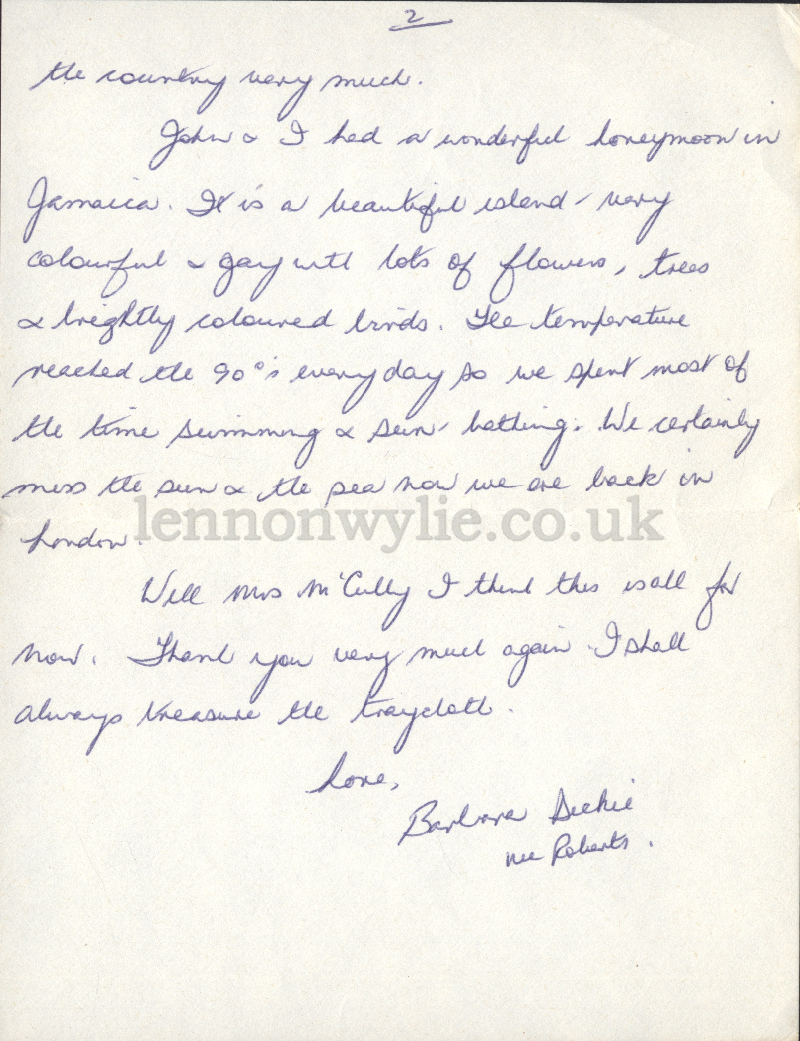 2
the country very much.
John & I had a wonderful honeymoon in
Jamaica. It is a beautiful island - very
colourful & gay with lots of flowers, trees
& brightly coloured birds. The temperature
reached the 90°'s every day so we spent most of
the time swimming & sun-bathing. We certainly
miss the sun & the sea now we are back in
lennonwylie.co.uk
London.
Well Mrs McCully I think this is all for
now. Thank you very much again. I shall
always treasure the traycloth.
Love,
Barbara
nee Roberts.